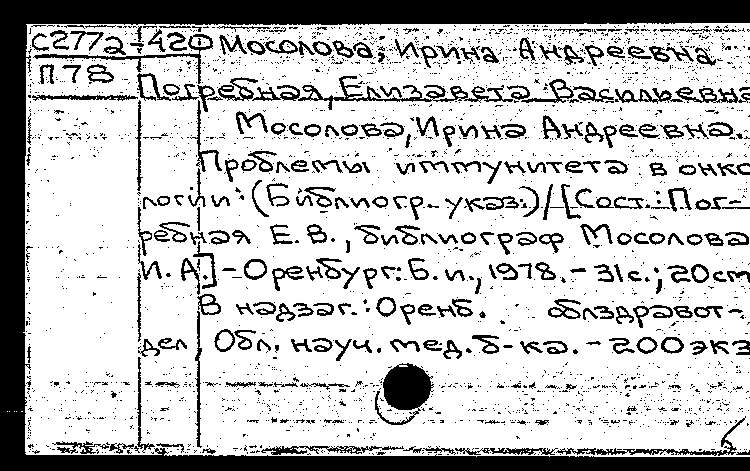 С2772-420 Мосолова, Ирина Андреевна
П78 Погребная, Елизавета Васильевна
Мосолова, Ирина Андреевна.
Проблемы иммунитета в онко
логии: (Библиогр. указ.)/[Сост.: Пог-
ребная Е. В., библиограф Мосолова
И. А.] - Оренбург: Б. и., 1978. - 31с.; 20cm
В надзаг.: Оренб. облздравот-
дел, Обл. науч. мед. б-ка. - 200 экз